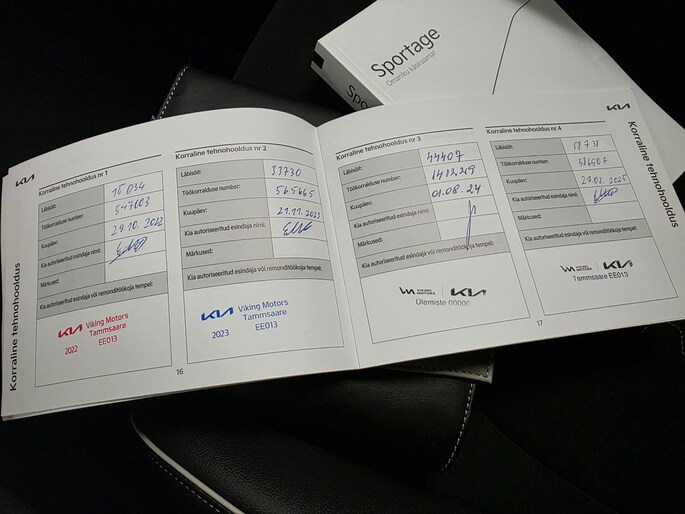 Sportage
Omaniku käsiraamat
KIA
Korraline tehnohooldus
Korraline tehnohooldus nr 1
Läbisõit:
Töökorralduse number: 547603
Kuupäev: 29.10.2022
Kia autoriseeritud esindaja nimi:
Märkused:
Kia autoriseeritud esindaja või remonditöökoja tempel:
KIA Viking Motors
Tammsaare
2022 EE013
Korraline tehnohooldus nr 2
Läbisõit: 33730
Töökorralduse number: 565665
Kuupäev: 21.11.2023
Kia autoriseeritud esindaja nimi:
Märkused:
Kia autoriseeritud esindaja või remonditöökoja tempel:
KIA Viking Motors
Tammsaare
2023 EE013
16
Korraline tehnohooldus nr 3
Läbisõit: 44407
Töökorralduse number: 141229
Kuupäev: 01.08.24
Kia autoriseeritud esindaja nimi:
Märkused:
Kia autoriseeritud esindaja või remonditöökoja tempel:
VIKING MOTORS KIA
Ülemiste 00000
Korraline tehnohooldus nr 4
Läbisõit:
Töökorralduse number:
Kuupäev:
Kia autoriseeritud esindaja nimi:
Märkused:
Kia autoriseeritud esindaja või remonditöökoja tempel:
VIKING MOTORS KIA
Tammsaare EE013
17
KIA
Korraline tehnohooldus